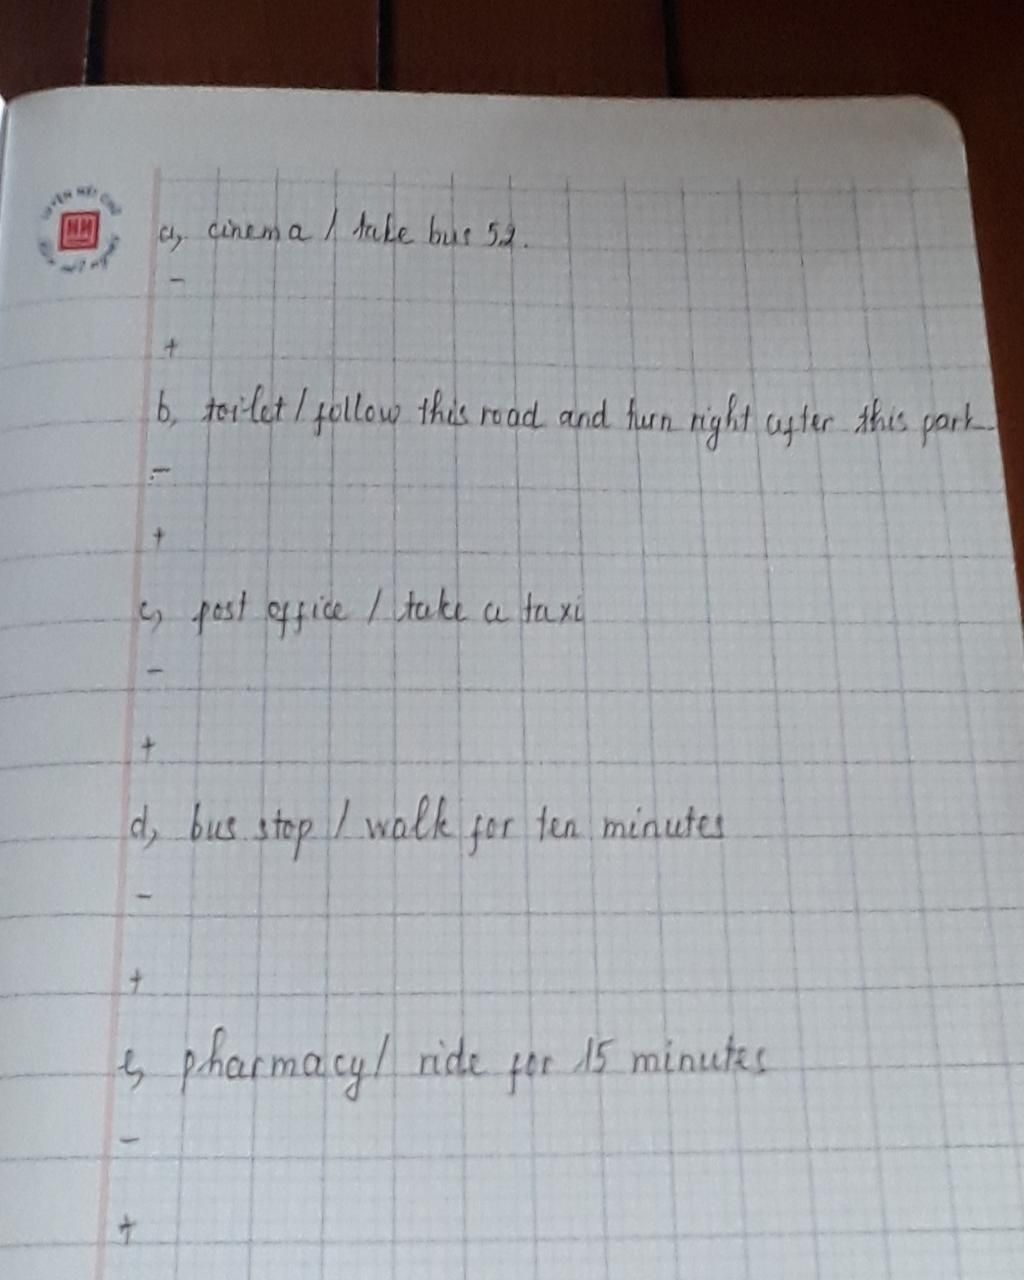 a, cinema / take bus 52.
-
+
b, toilet / follow this road and turn right after this park.
-
+
c, post office / take a taxi
-
+
d, bus stop / walk for ten minutes
-
+
e, pharmacy / ride for 15 minutes
-
+